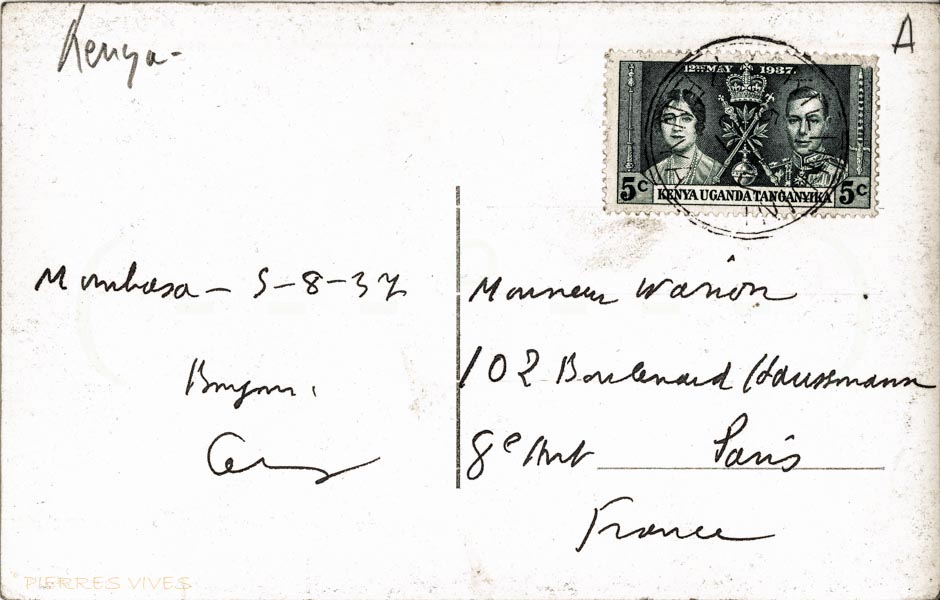 Kenya -
A
12TH MAY 1937.
5c KENYA UGANDA TANGANYIKA 5c
Mombasa - 5-8-37
Monsieur Warion
102 Boulevard Haussmann
8e Arrt Paris
France
PIERRES VIVES